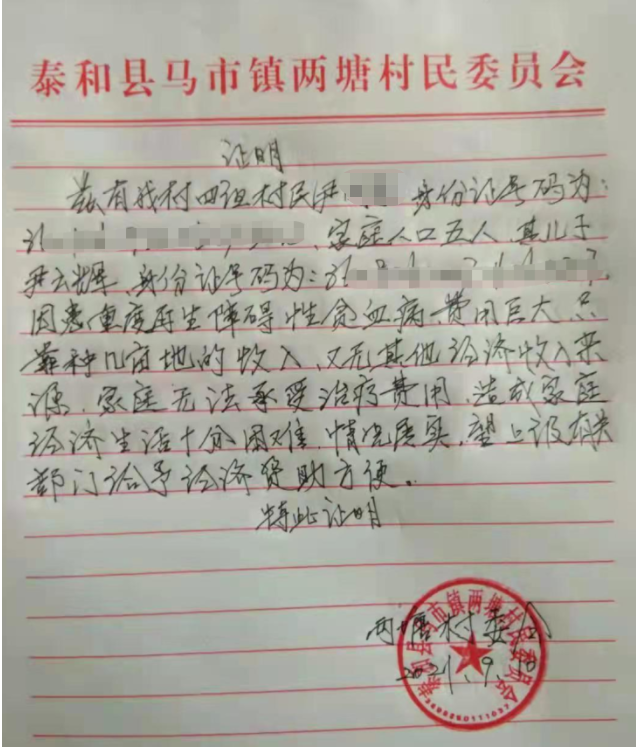 泰和县马市镇两塘村民委员会
证明
兹有我村四组村民尹 身份证号码为:
家庭人口五人,其儿子
尹云辉,身份证号码为:
因患重度再生障碍性贫血病,费用巨大,只
靠种几亩地的收入,又无其他经济收入来
源,家庭无法承受治疗费用,造成家庭
经济生活十分困难,情况属实,望上级有关
部门给予经济资助方便。
特此证明
两塘村委会
2021.9.10
泰和县马市镇两塘村民委员会